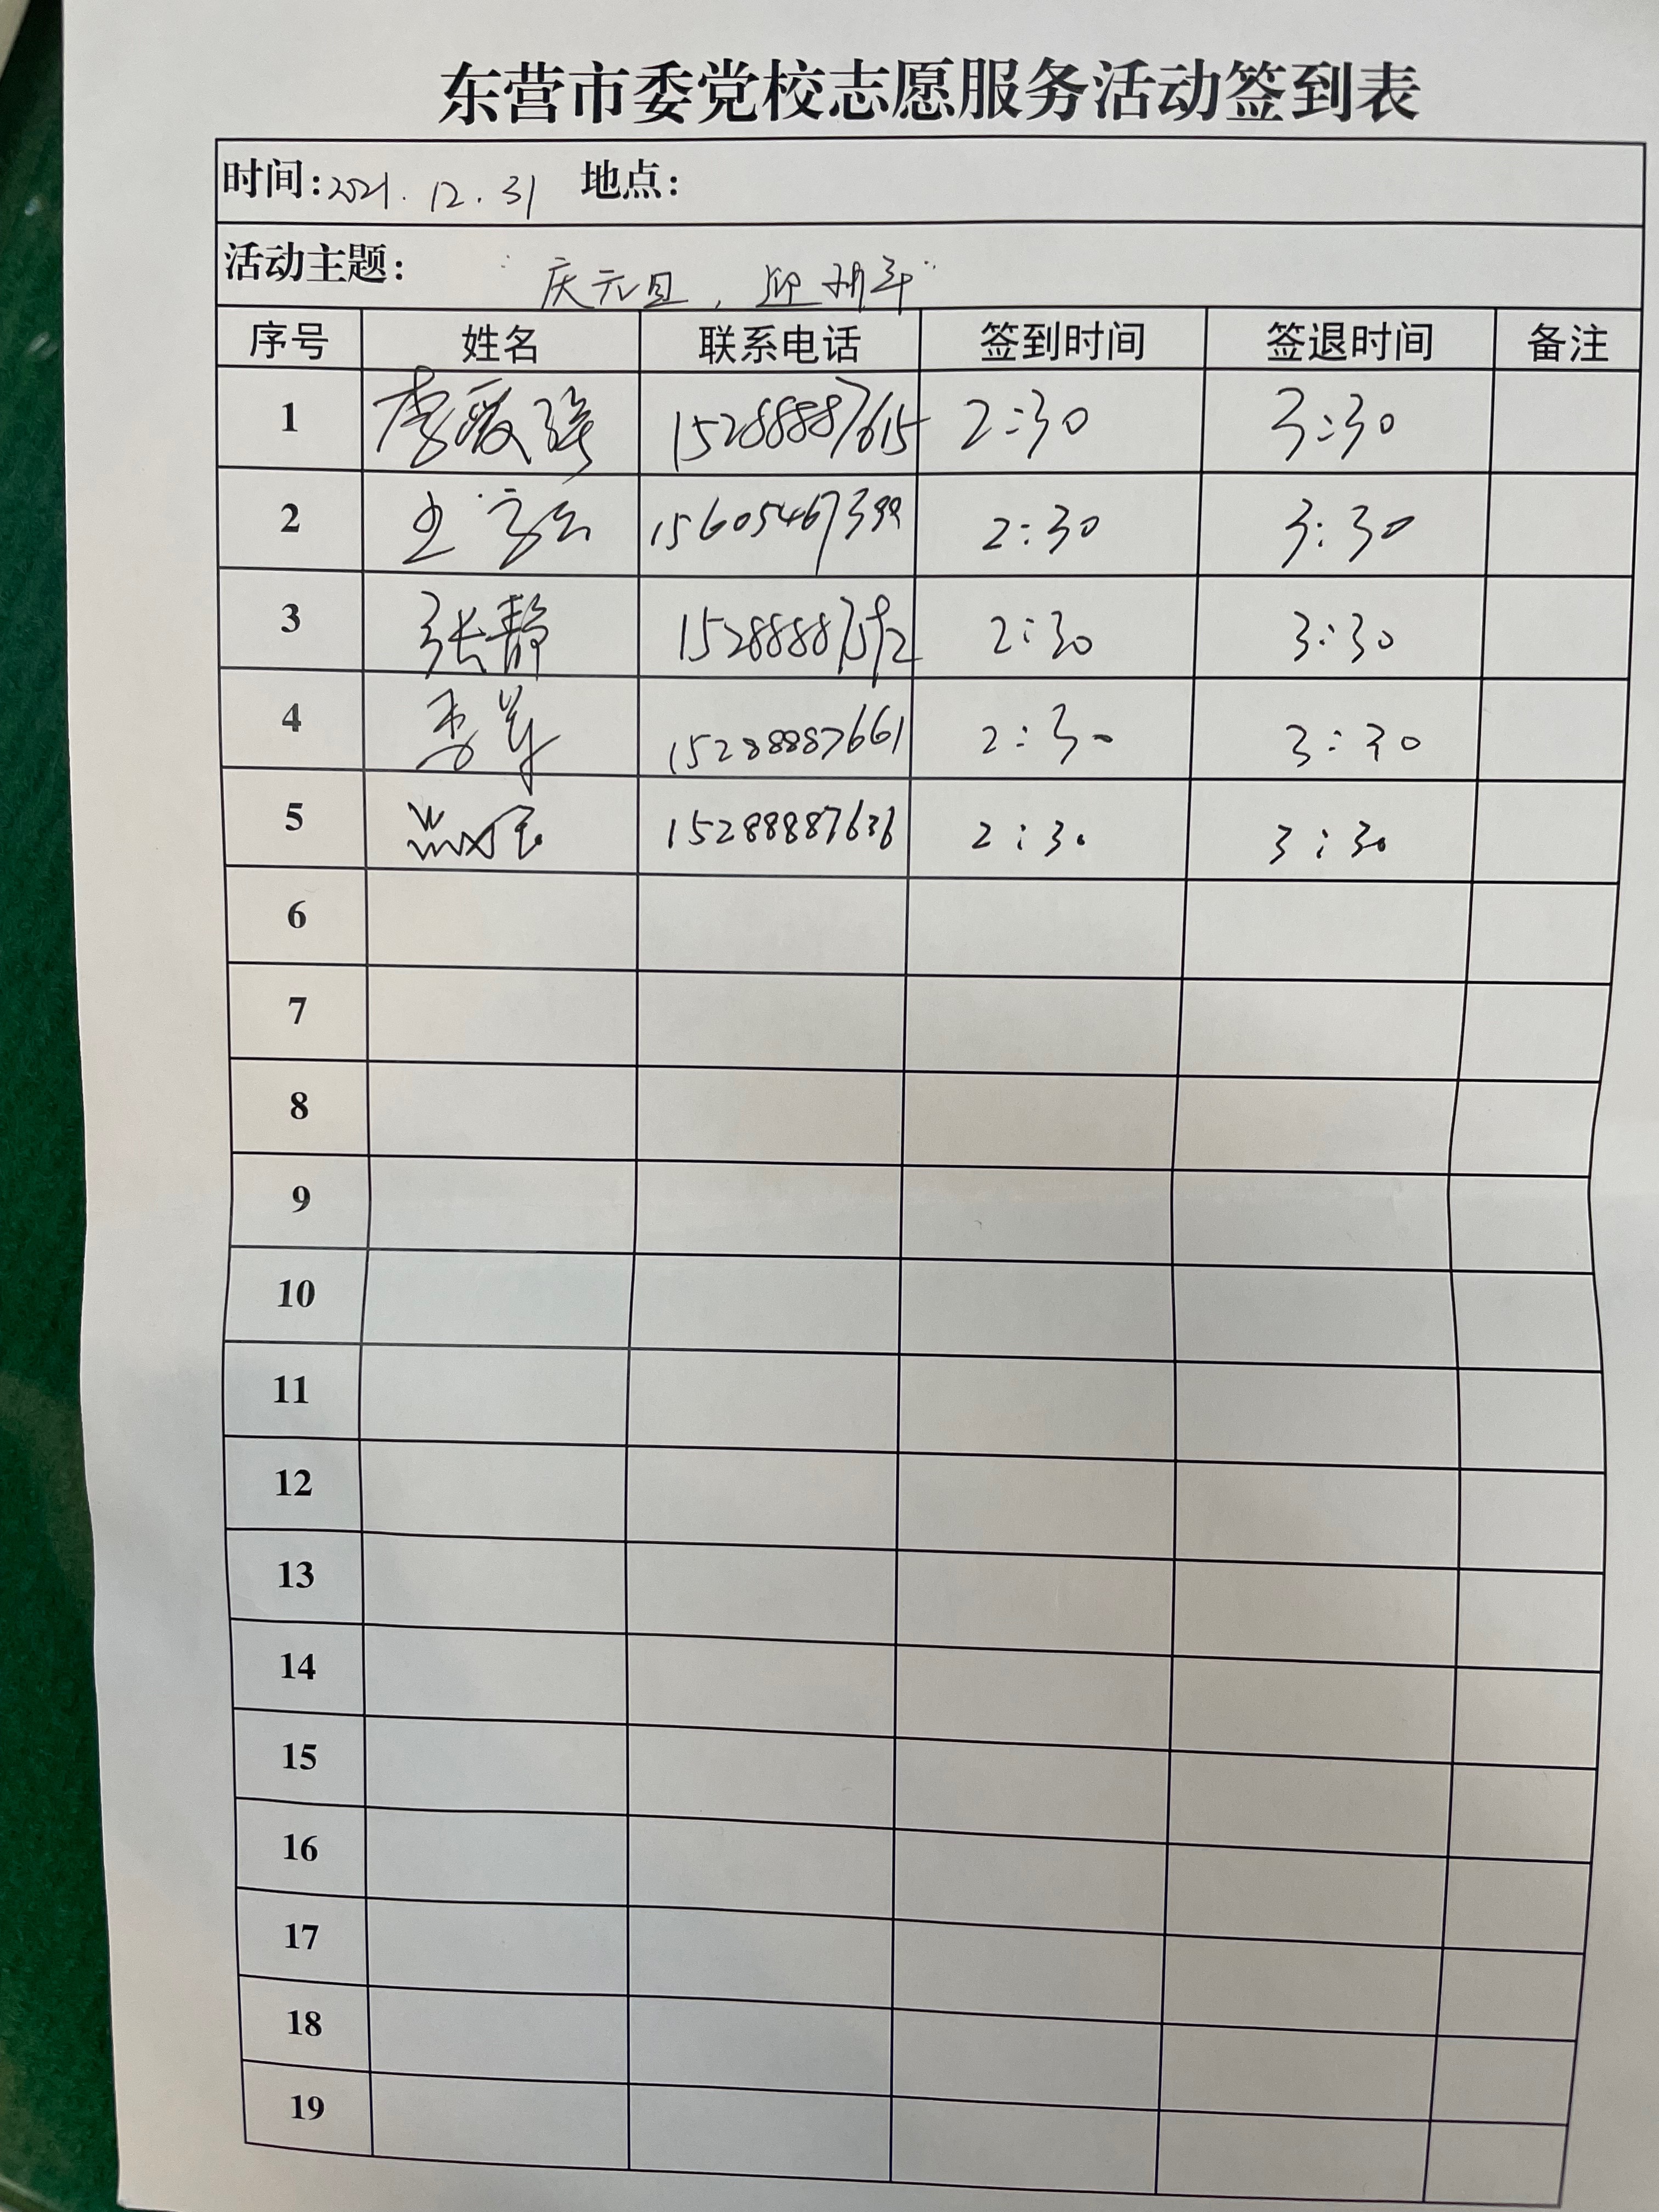 东营市委党校志愿服务活动签到表
时间:2021.12.31 地点:
活动主题: "庆元旦,迎新年"
序号 姓名 联系电话 签到时间 签退时间 备注
1 李爱强 15288887615 2:30 3:30
2 王 15605467399 2:30 3:30
3 张静 2:30 3:30
4 李军 15288887661 2:30 3:30
5 15288887636 2:30 3:30
6
7
8
9
10
11
12
13
14
15
16
17
18
19